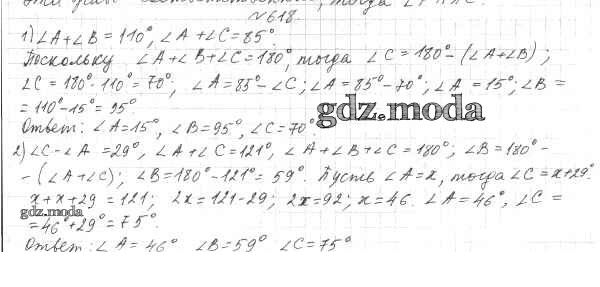 тогда
№618.
1) ∠A+∠B=110°, ∠A+∠C=85°.
Поскольку ∠A+∠B+∠C=180°, тогда ∠C=180°-(∠A+∠B);
∠C=180°-110°=70°, ∠A=85°-∠C; ∠A=85°-70°; ∠A=15°; ∠B=
=110°-15°=95°.
gdz.moda
Ответ: ∠A=15°, ∠B=95°, ∠C=70°.
2) ∠C-∠A=29°, ∠A+∠C=121°, ∠A+∠B+∠C=180°; ∠B=180°-
-(∠A+∠C); ∠B=180°-121°=59°. Пусть ∠A=x, тогда ∠C=x+29°.
x+x+29=121; 2x=121-29; 2x=92; x=46. ∠A=46°, ∠C=
gdz.moda
=46°+29°=75°.
Ответ: ∠A=46° ∠B=59° ∠C=75°